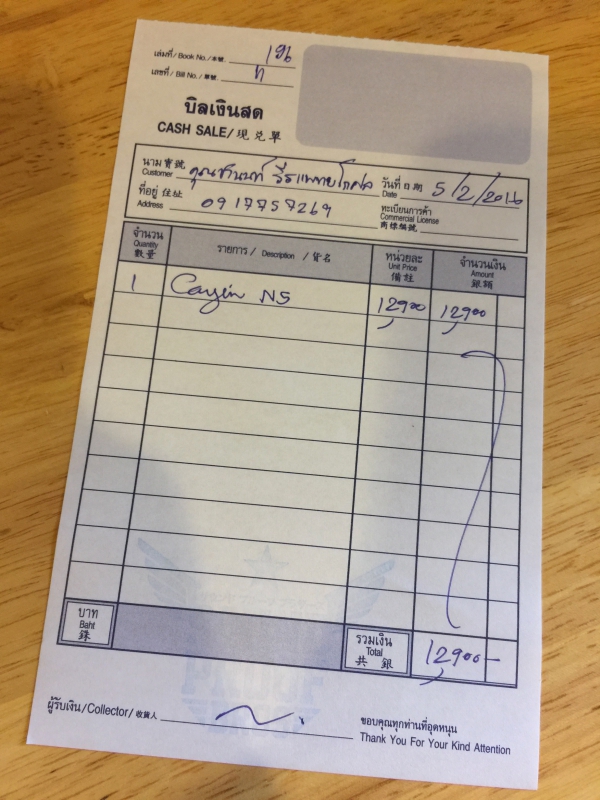 เล่มที่/Book No./本號 196
เลขที่/Bill No./單號
บิลเงินสด
CASH SALE/現兑單
นาม寶號 Customer คุณชานนท์
วันที่日期 Date 5/2/2016
ที่อยู่住址 Address 0917757269
ทะเบียนการค้า Commercial License 商標編號
จำนวน Quantity 數量 รายการ/Description/貨名 หน่วยละ Unit Price 備註 จำนวนเงิน Amount 銀額
1 Cayin N5 12900 12900
บาท Baht 銖 รวมเงิน Total 共銀 12900-
ผู้รับเงิน/Collector/收貨人
ขอบคุณทุกท่านที่อุดหนุน
Thank You For Your Kind Attention